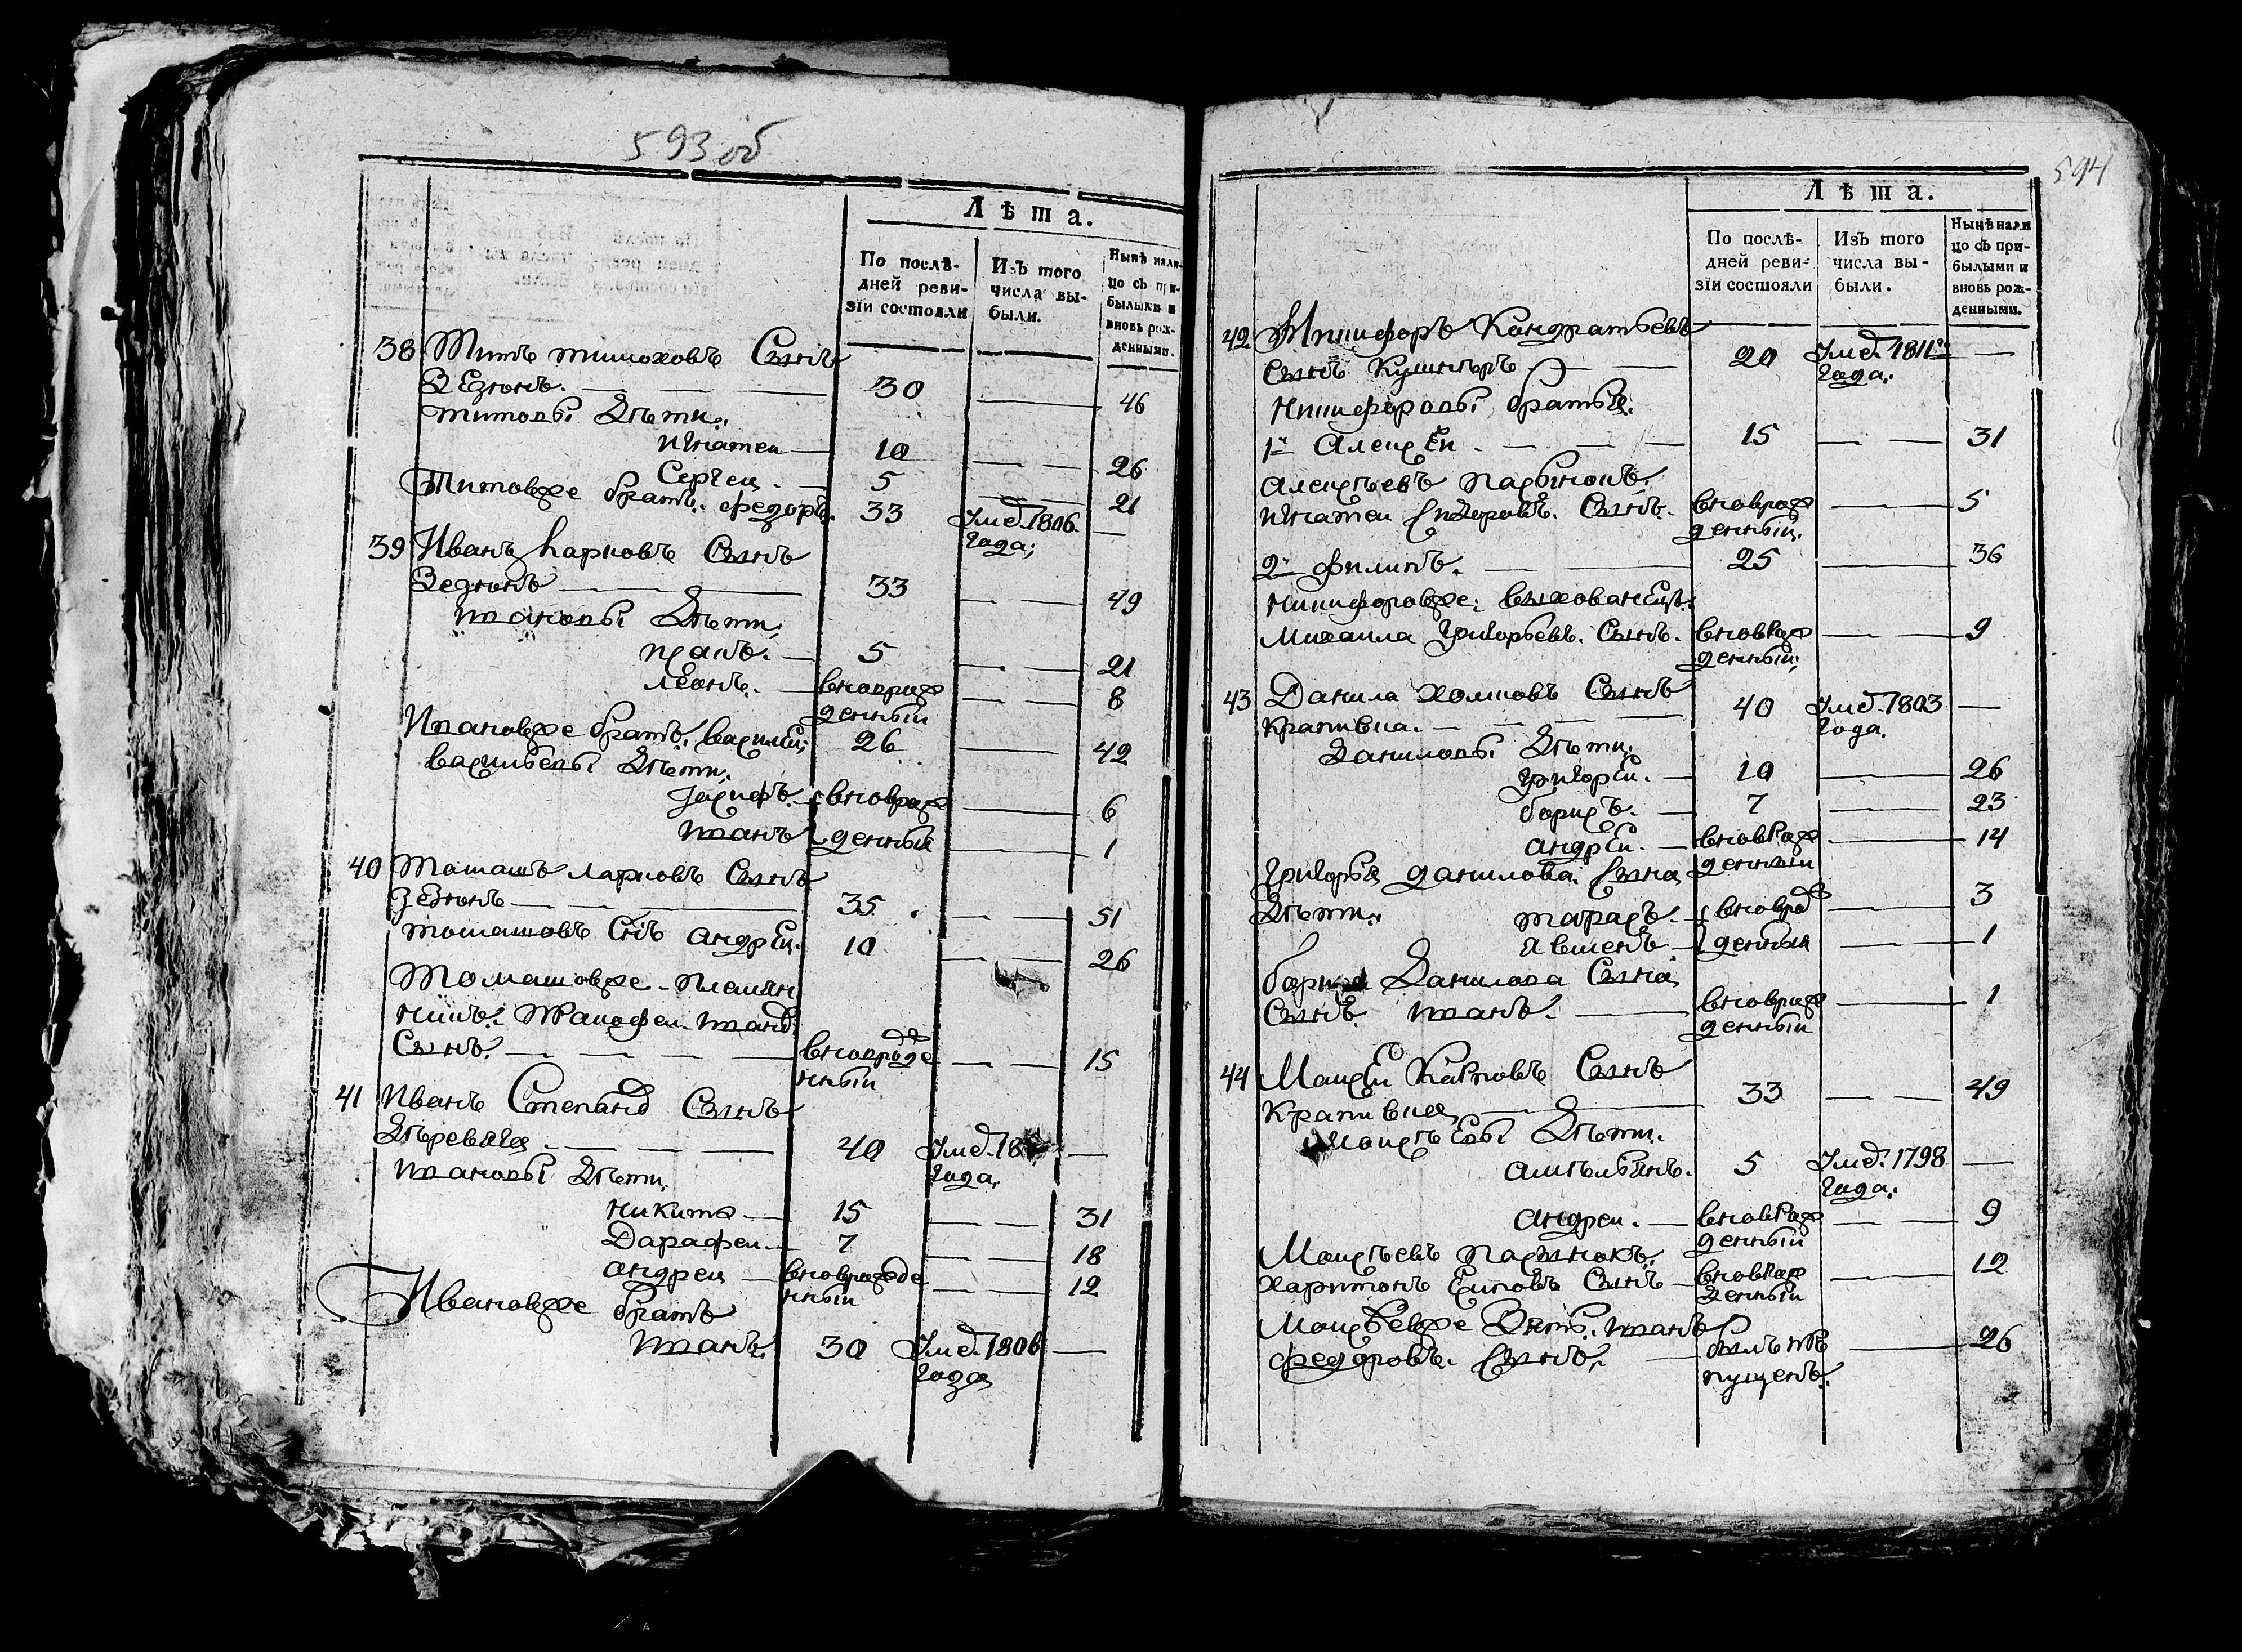 593 об
Лѣта.
По послѣ-
дней реви-
зїи состояли
Изъ того
числа вы-
были.
Нынѣ нали-
цо съ при-
былыми и
вновь рож-
денными.
38 Титъ тимоховъ Сынъ
Зезюнъ. 30 46
титовы Дѣти:
игнатеи 10 26
Сергеи. 5 21
Титовже братъ. федоръ. 33 Умер. 1806.
года;
39 Иванъ карповъ Сынъ
Зезюнъ 33 49
ивановы Дѣти;
исакъ. 5 21
леонъ. вноврож 8
денный
Ивановже братъ. василеи; 26 42
васильевы Дѣти;
иосифъ. вноврож 6
иванъ денныи 1
40 Томашъ карповъ Сынъ
зезюнъ 35 51
томашовъ Снъ андреи. 10 26
Томашовже племян
никъ. Тимофеи иванов
Сынъ. вноврожде 15
нныи
41 Иванъ Степанов Сынъ
Дѣревяга 40 Умер. 18
года.
ивановы Дѣти;
никита 15 31
Дарафеи 7 18
андреи вноврожде 12
нныи
Ивановже братъ
иванъ. 30 Умер. 1806
года
594
Лѣта.
По послѣ-
дней реви-
зїи состояли
Изъ того
числа вы-
были.
Нынѣ нали
цо съ при-
былыми и
вновь рож-
денными.
42 Никифоръ Кондратьевъ
Сынъ кушнѣръ 20 Умер. 1811го
года.
никифоровы братья.
1й Алексеи. 15 31
алексѣевъ пасынокъ.
игнатеи сидоровъ. Сынъ. вноврож 5
денныи.
2й филипъ. 25 36
никифоровже. выхованецъ.
михаила григорьевъ. Сынъ. вноврож 9
денныи;
43 Данила хомповъ Сынъ
крапивка. 40 Умер. 1803
года.
Даниловы Дѣти.
григореи. 10 26
борисъ. 7 23
андреи. вноврож 14
григорья данилова сына денныи
Дѣти: тарасъ. вноврож 3
Авсиенъ денныя 1
бориса Данилова Сына
Сынъ. иванъ. вноврож 1
денныи
44 Моисеи Карповъ Сынъ
Крапивка 33 49
моисѣевы Дѣти.
амельянъ. 5 Умер. 1798
года.
андреи. вноврож 9
денныи
Моисѣевъ пасынокъ.
харитонъ Еиповъ Сынъ вноврож 12
денныи
Моисѣевже Зять. иванъ
федоровъ. Сынъ. былъ про 26
пущенъ.